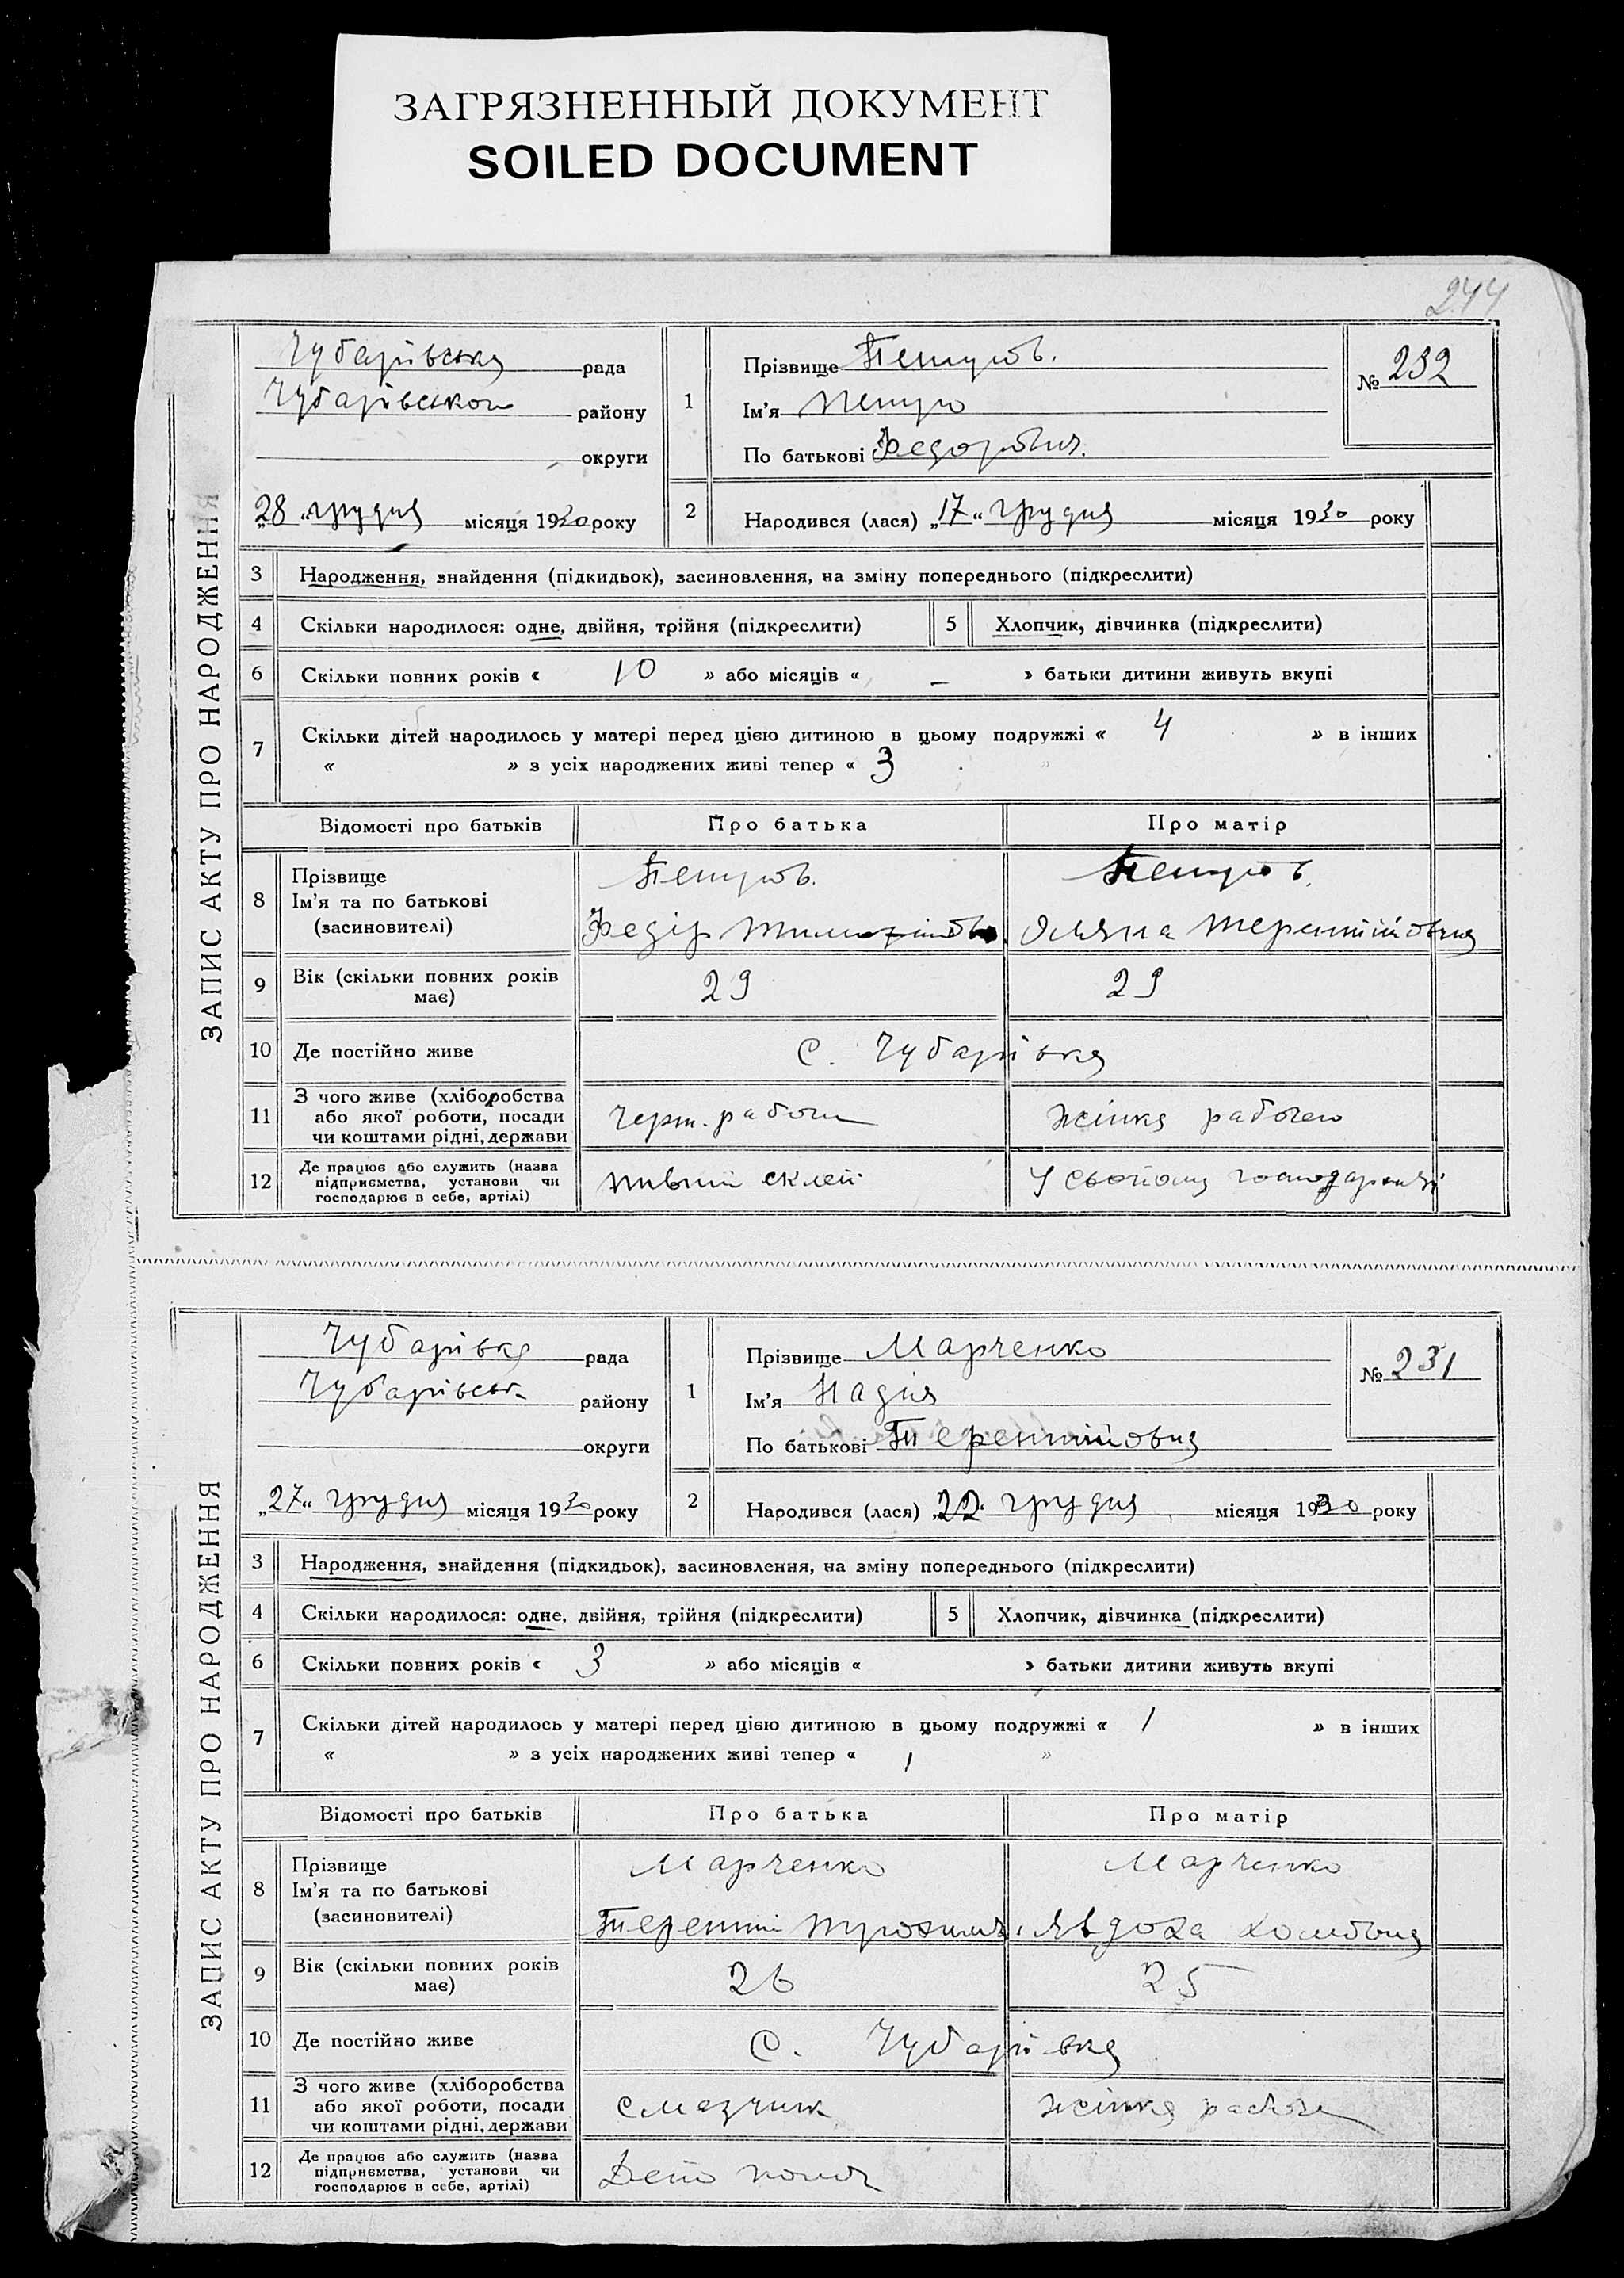 ЗАГРЯЗНЕННЫЙ ДОКУМЕНТ
SOILED DOCUMENT
244
ЗАПИС АКТУ ПРО НАРОДЖЕННЯ
Чубарівська рада
Чубарівського району
округи
„28“ грудня місяця 1930 року
1
Прізвище Петров.
Ім'я Петро
По батькові Федорович.
№ 232
2
Народився (лася) „17“ грудня місяця 1930 року
3 Народження, знайдення (підкидьок), засиновлення, на зміну попереднього (підкреслити)
4 Скільки народилося: одне, двійня, трійня (підкреслити) 5 Хлопчик, дівчинка (підкреслити)
6 Скільки повних років « 10 » або місяців « – » батьки дитини живуть вкупі
7 Скільки дітей народилось у матері перед цією дитиною в цьому подружжі « 4 » в інших
« » з усіх народжених живі тепер « 3 »
Відомості про батьків Про батька Про матір
8 Прізвище
Ім'я та по батькові
(засновителі)
Петров.
Федір
Петров.
Уляна Терентіївна
9 Вік (скільки повних років
має)
29 29
10 Де постійно живе с. Чубарівка
11 З чого живе (хліборобства
або якої роботи, посади
чи коштами рідні, держави
черн. рабочи
жінка рабочого
12 Де працює або служить (назва
підприємства, установи чи
господарює в себе, артілі)
У своїому господарстві
ЗАПИС АКТУ ПРО НАРОДЖЕННЯ
Чубарівка рада
Чубарівськ. району
округи
„27“ грудня місяця 1930 року
1
Прізвище Марченко
Ім'я Надія
По батькові Терентіївна
№ 231
2
Народився (лася) „22“ грудня місяця 1930 року
3 Народження, знайдення (підкидьок), засиновлення, на зміну попереднього (підкреслити)
4 Скільки народилося: одне, двійня, трійня (підкреслити) 5 Хлопчик, дівчинка (підкреслити)
6 Скільки повних років « 3 » або місяців « » батьки дитини живуть вкупі
7 Скільки дітей народилось у матері перед цією дитиною в цьому подружжі « 1 » в інших
« » з усіх народжених живі тепер « 1 »
Відомості про батьків Про батька Про матір
8 Прізвище
Ім'я та по батькові
(засиновителі)
Марченко
Терентій Трохим.
Марченко
Явдоха Хомовна
9 Вік (скільки повних років
має)
26 25
10 Де постійно живе с. Чубарівка
11 З чого живе (хліборобства
або якої роботи, посади
чи коштами рідні, держави
смазчик
жінка рабоч
12 Де працює або служить (назва
підприємства, установи чи
господарює в себе, артілі)
Депо